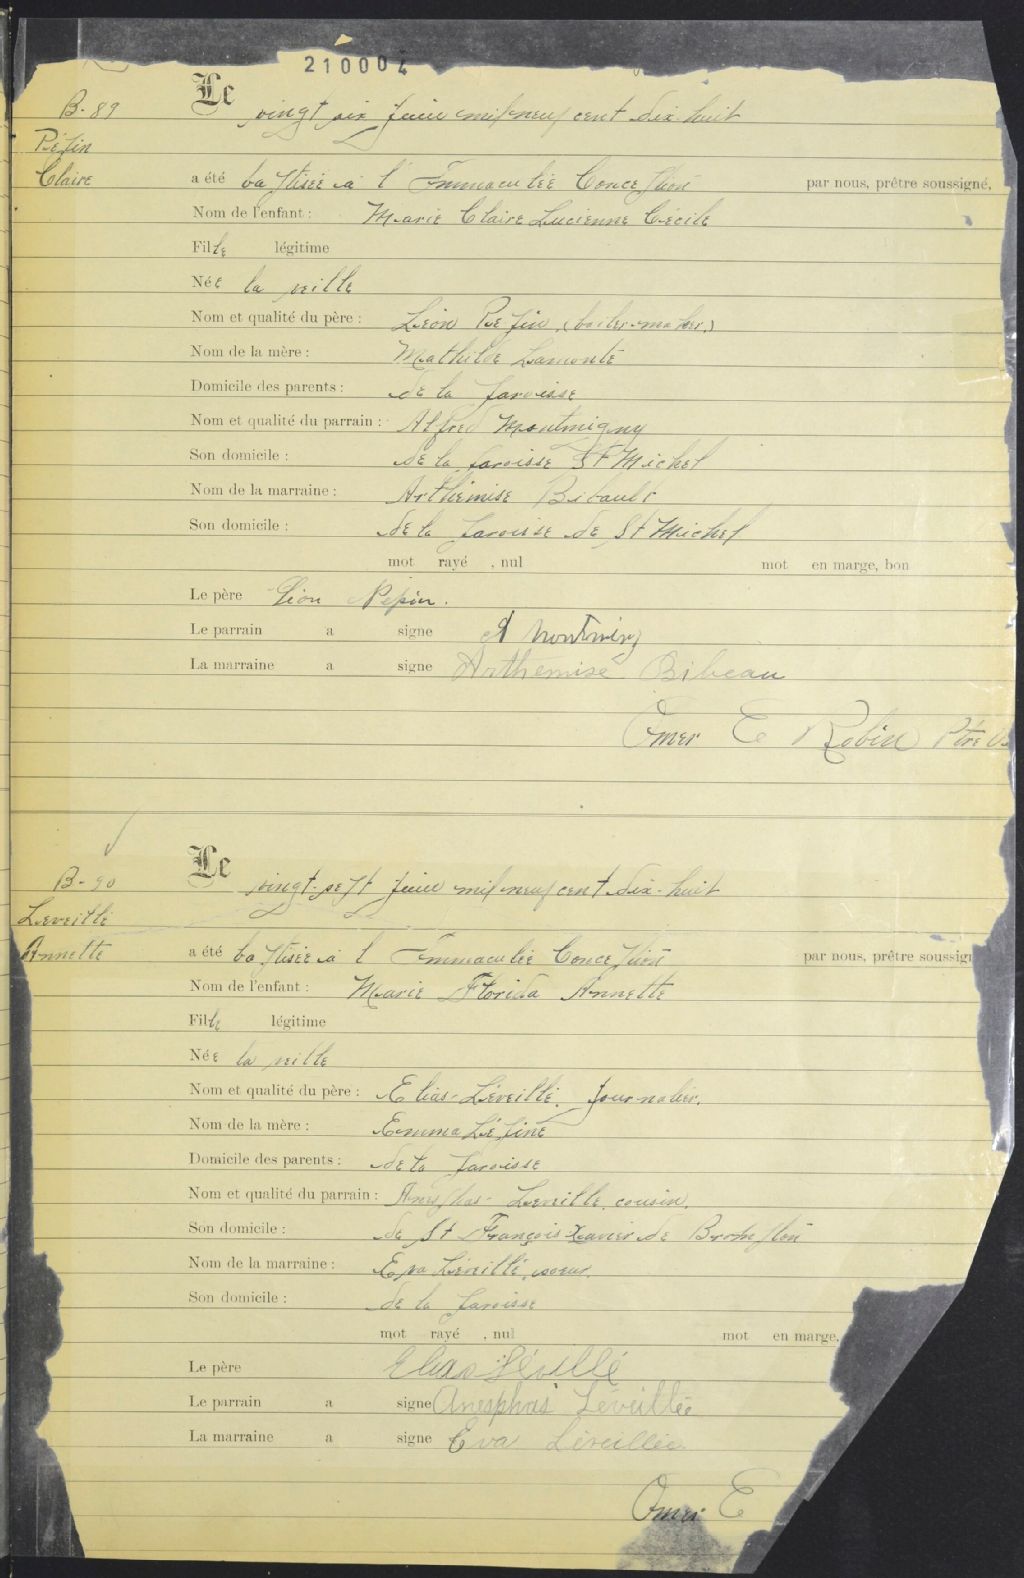 210004
B-89
Le vingt six Juin mil neuf cent dix-huit
Pépin
Claire
a été baptisée à l'Immaculée Conception par nous, prêtre soussigné,
Nom de l'enfant : Marie Claire Lucienne Cécile
Fille légitime
Née la veille
Nom et qualité du père : Léon Pépin, (boiler-maker.)
Nom de la mère : Mathilde Lamonté
Domicile des parents : de la paroisse
Nom et qualité du parrain : Alfred Montmigny
Son domicile : de la paroisse St Michel
Nom de la marraine : Arthémise Bibault
Son domicile : de la paroisse de St Michel
mot rayé , nul mot en marge, bon
Le père Léon Pépin.
Le parrain a signé A Montminy
La marraine a signé Arthemise Bibeau
Omer E Robin Ptre
B-90
Le vingt-sept Juin mil neuf cent dix-huit
Leveillé
Annette
a été baptisée à l'Immaculée Conception par nous, prêtre soussig
Nom de l'enfant : Marie Florida Annette
Fille légitime
Née la veille
Nom et qualité du père : Elias Léveillé. Journalier.
Nom de la mère : Emma Lépine
Domicile des parents : de la paroisse
Nom et qualité du parrain : Léveillé, cousin.
Son domicile : de St François Xavier de Brompton
Nom de la marraine : Eva Léveillé, soeur.
Son domicile : de la paroisse
mot rayé , nul mot en marge,
Le père Elias Léveillé
Le parrain a signé Anesphas Léveillée
La marraine a signé Eva Léveillée
Omer E